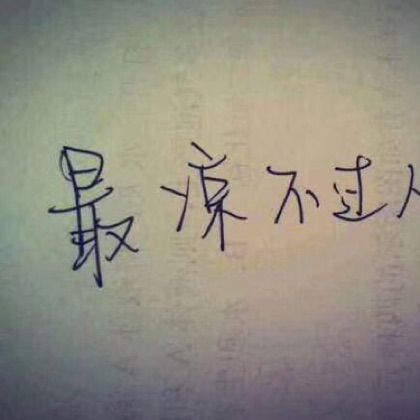 最凉不过人